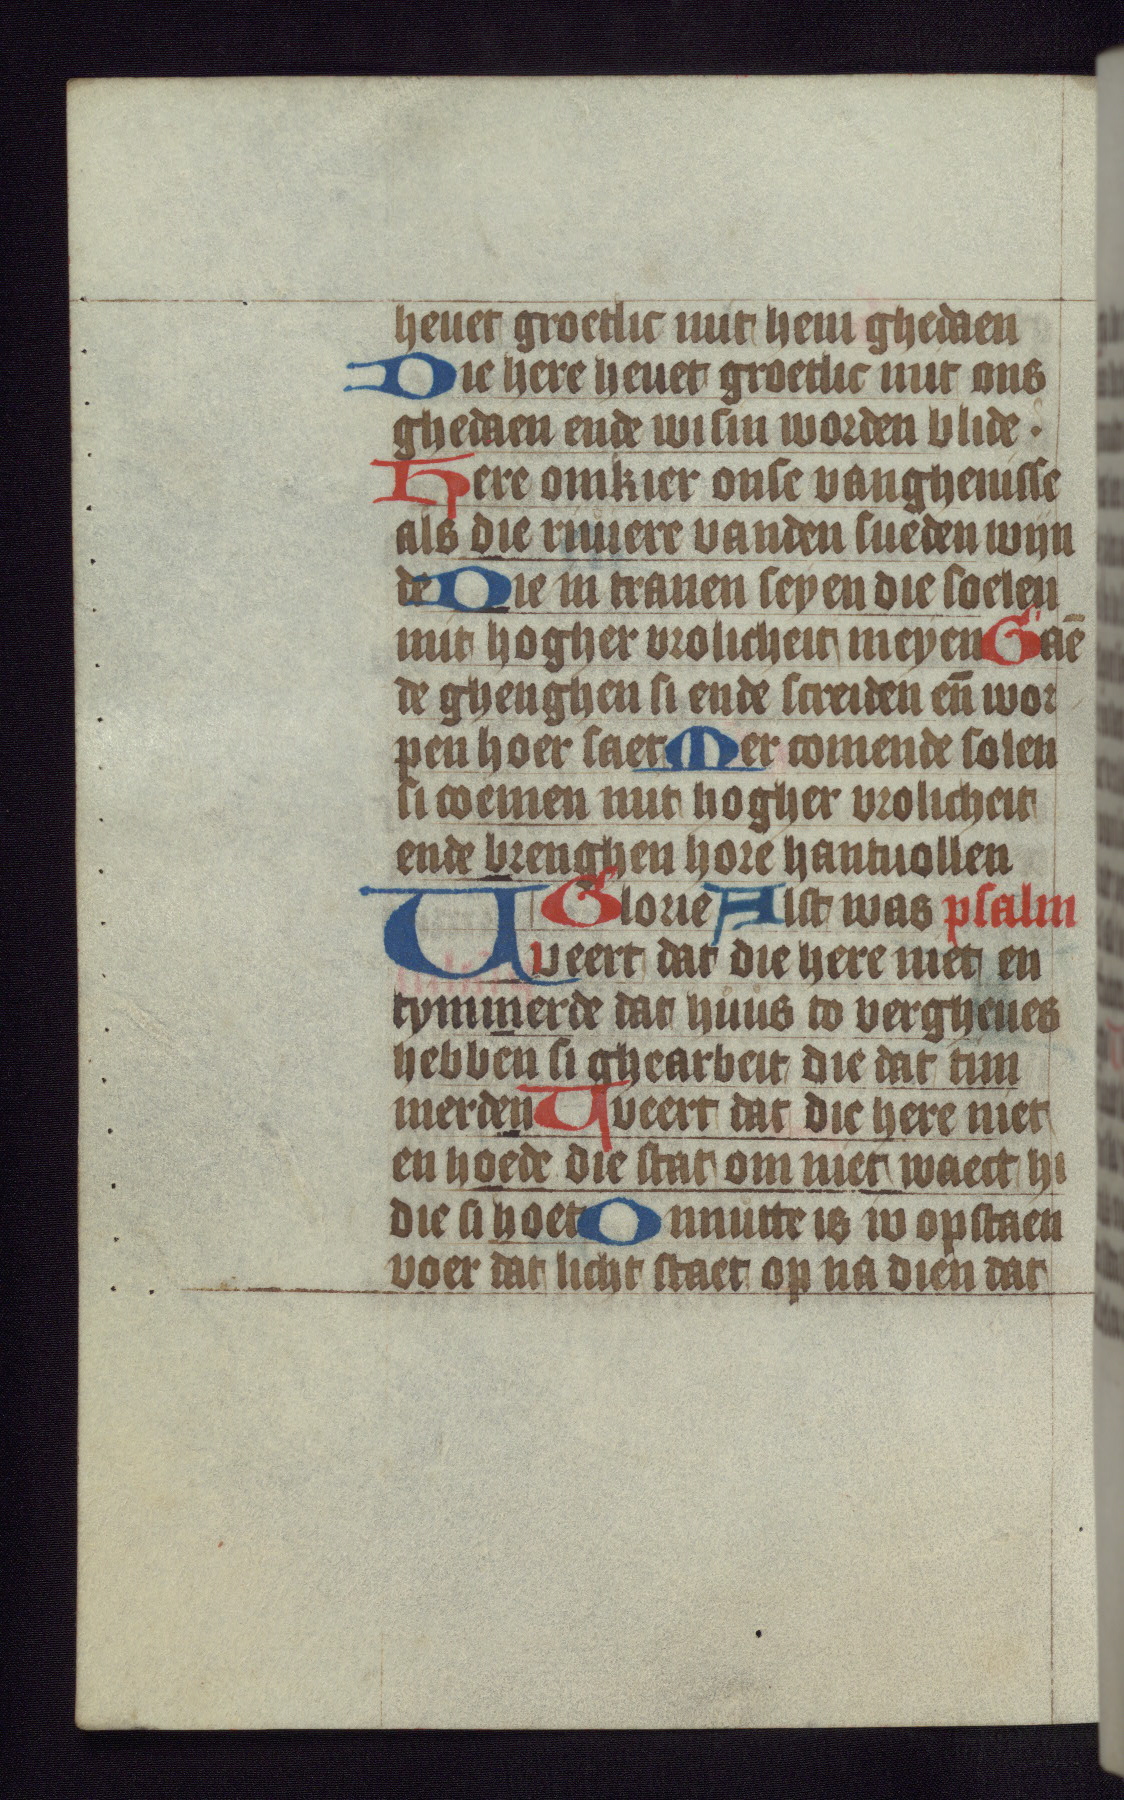 heuet groetlic mit hem ghedaen
Die here heuet groetlic mit ons
ghedaen ende wi sin worden blide .
Here omkier onse vanghenisse
als die riuiere vanden sueden wyn
de Die in tranen seyen die soelen
mit hogher vrolicheit meyen Gaē
de ghenghen si ende screiden eñ wor
pen hoer saet Mer comende solen
si coemen mit hogher vrolicheit
ende brenghen hore hantuollen
Glorie Alst was psalm
Uveert dat die here niet en
tymmerde dat huus to vergheues
hebben si ghearbeit die dat tim
merden Uveert dat die here niet
en hoede die stat om niet waect hi
die si hoet Onnutte is iv opstaen
voer dat licht staet op na dien dat